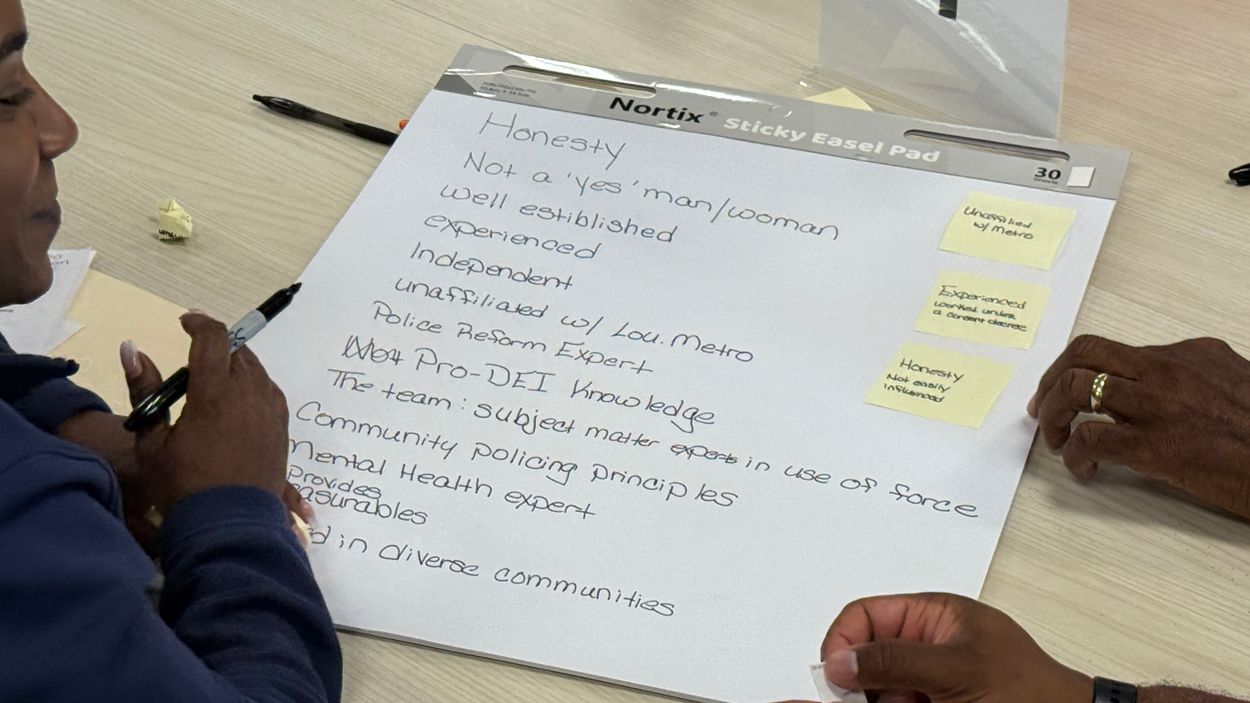 Nortix® Sticky Easel Pad
30
Honesty
Not a 'yes' man/woman
well established
experienced
Independent
unaffiliated w/ Lou. Metro
Police Reform Expert
Pro-DEI Knowledge
The team: subject matter experts in use of force
Community policing principles
Mental Health expert
Provides
asurables
d in diverse communities
Unaffilied
w/ Metro
Experienced
worked under
a consent decree
Honesty
Not easily
influenced